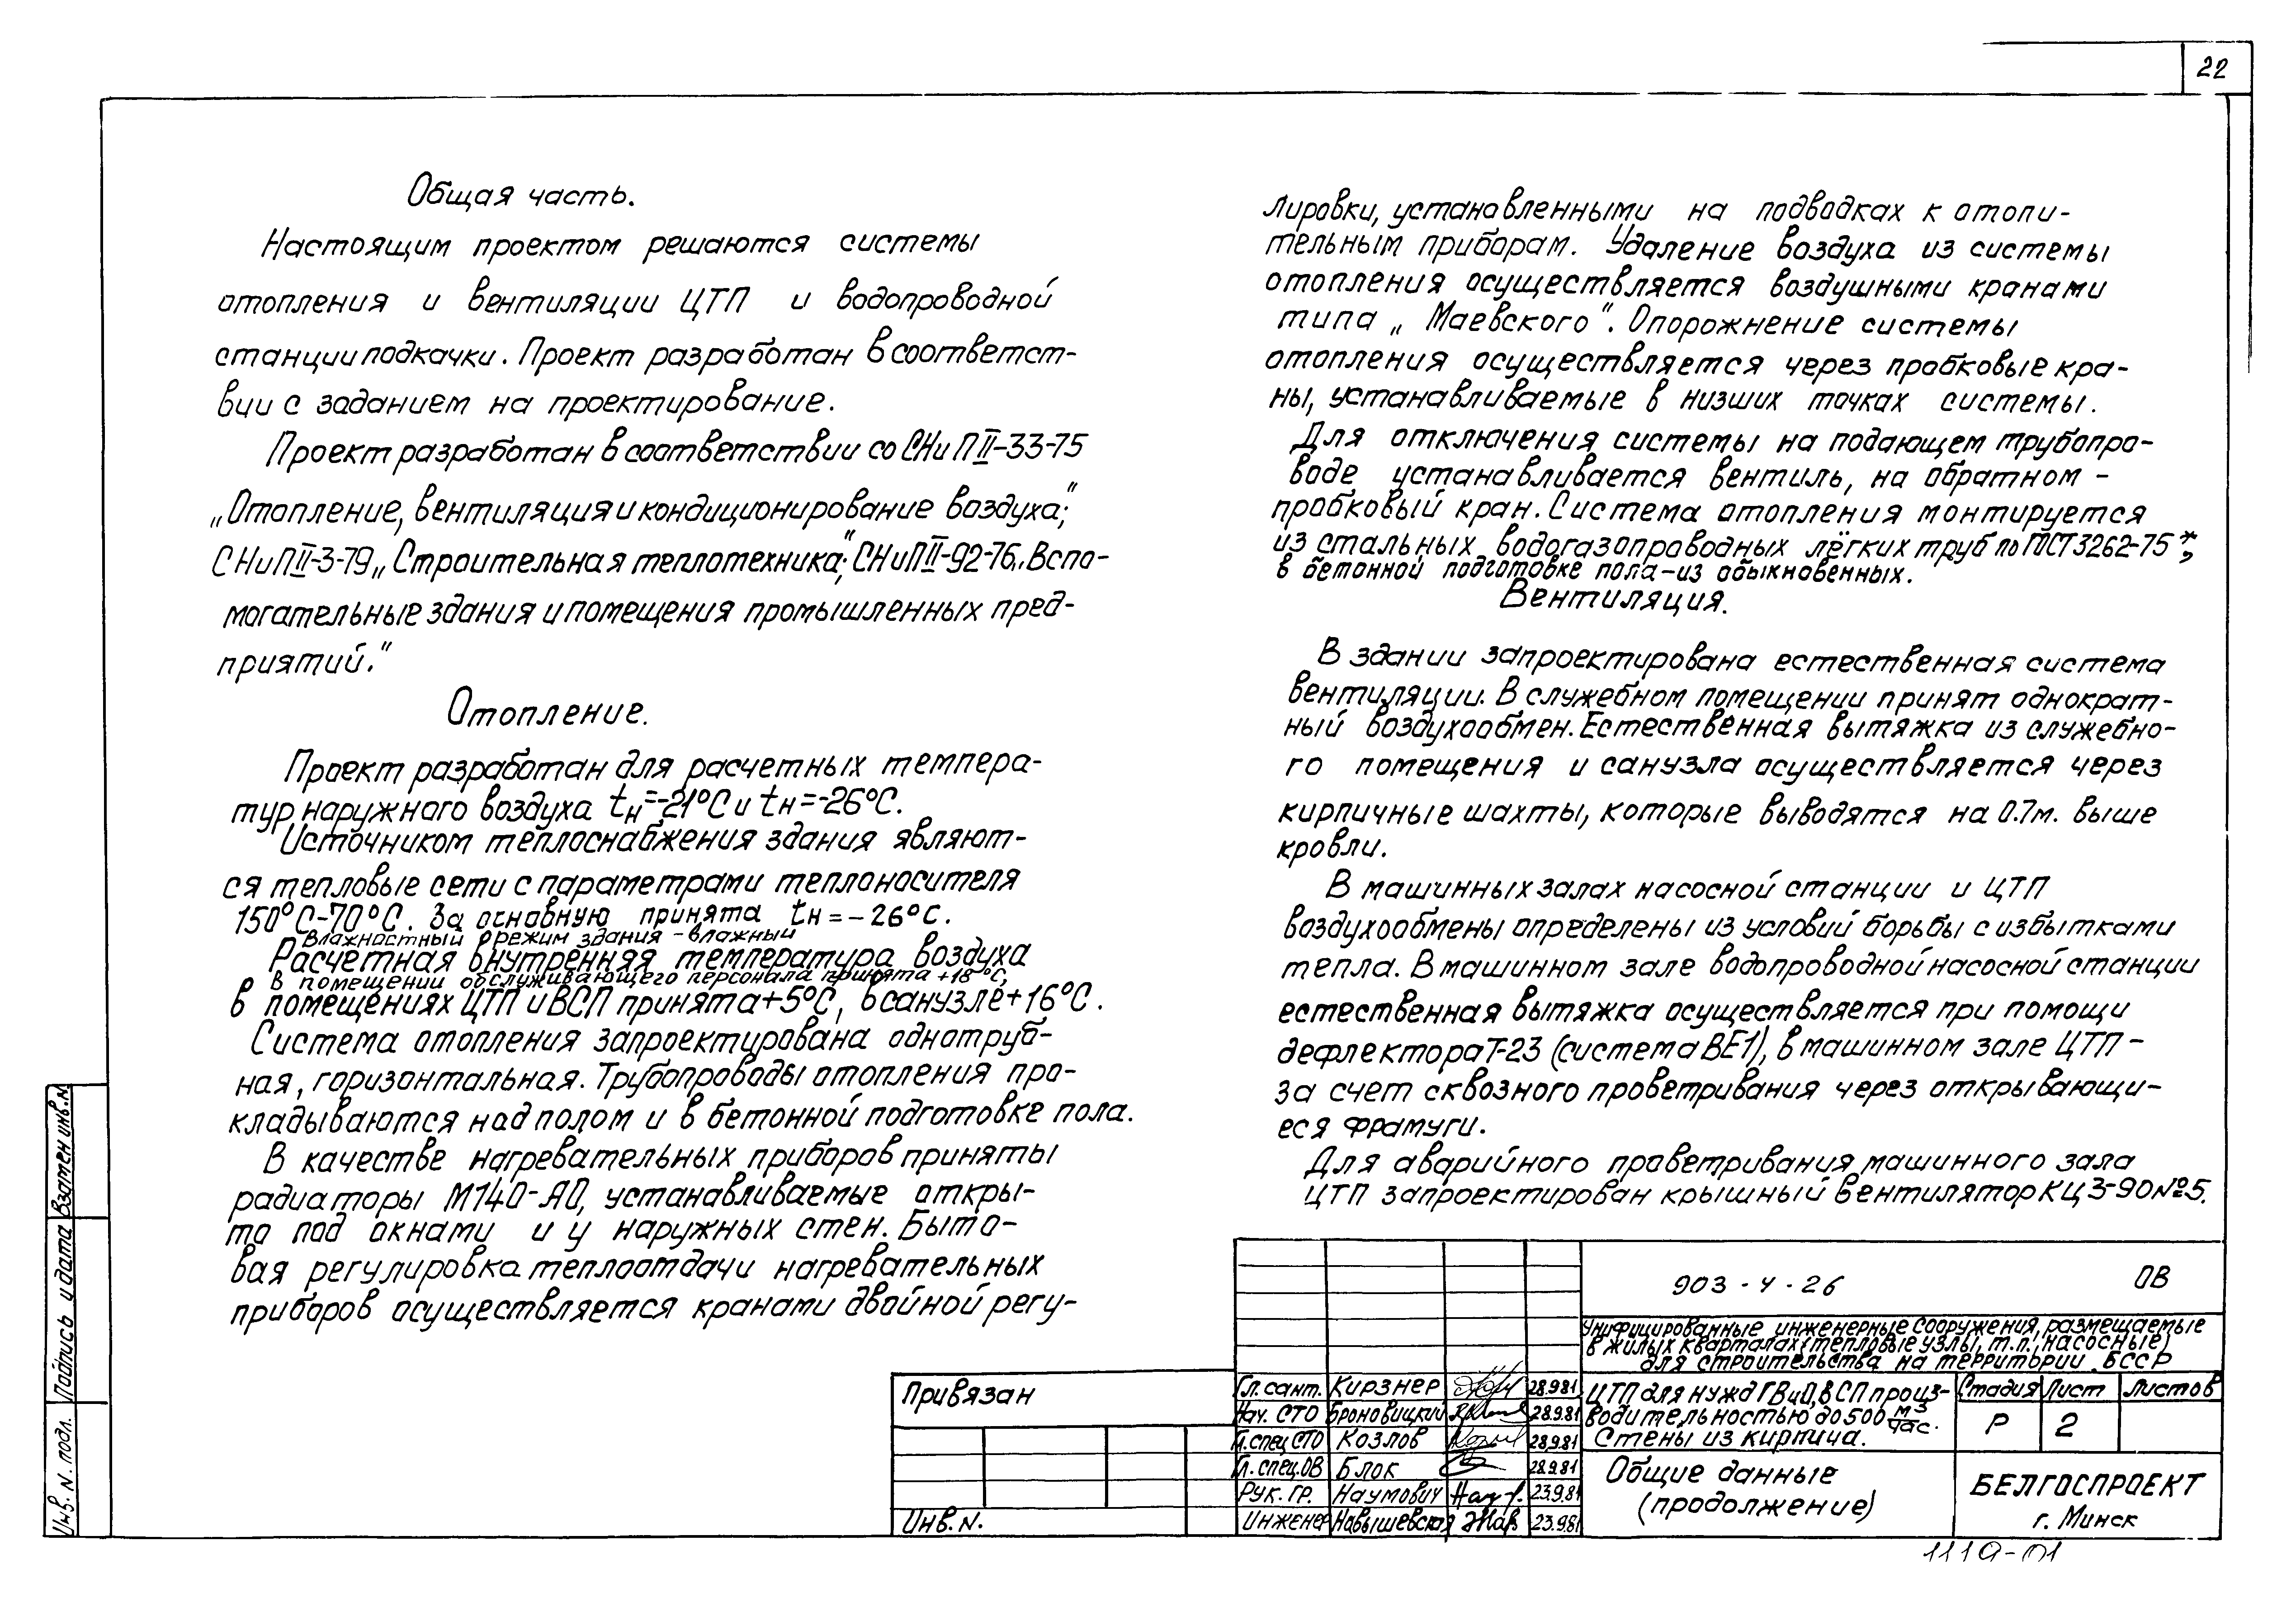 22
Общая часть.
Настоящим проектом решаются системы
отопления и вентиляции ЦТП и водопроводной
станции подкачки. Проект разработан в соответст-
вии с заданием на проектирование.
Проект разработан в соответствии со СНиП II-33-75
„Отопление, вентиляция и кондиционирование воздуха";
СНиП II-3-79 „Строительная теплотехника"; СНиП II-92-76 „Вспо-
могательные здания и помещения промышленных пред-
приятий."
Отопление.
Проект разработан для расчетных темпера-
тур наружного воздуха tн=-21°С и tн=-26°С.
Источником теплоснабжения здания являют-
ся тепловые сети с параметрами теплоносителя
150°С-70°С. За основную принята tн=-26°С.
Влажностный режим здания - влажный
Расчетная внутренняя температура воздуха
в помещении обслуживающего персонала принята +18°С,
в помещениях ЦТП и ВСП принята +5°С, в санузле +16°С.
Система отопления запроектирована однотруб-
ная, горизонтальная. Трубопроводы отопления про-
кладываются над полом и в бетонной подготовке пола.
В качестве нагревательных приборов приняты
радиаторы М140-АО, устанавливаемые откры-
то под окнами и у наружных стен. Быто-
вая регулировка теплоотдачи нагревательных
приборов осуществляется кранами двойной регу-
лировки, установленными на подводках к отопи-
тельным приборам. Удаление воздуха из системы
отопления осуществляется воздушными кранами
типа „Маевского". Опорожнение системы
отопления осуществляется через пробковые кра-
ны, устанавливаемые в низших точках системы.
Для отключения системы на подающем трубопро-
воде устанавливается вентиль, на обратном -
пробковый кран. Система отопления монтируется
из стальных водогазопроводных лёгких труб по ГОСТ 3262-75*,
в бетонной подготовке пола - из обыкновенных.
Вентиляция.
В здании запроектирована естественная система
вентиляции. В служебном помещении принят однократ-
ный воздухообмен. Естественная вытяжка из служебно-
го помещения и санузла осуществляется через
кирпичные шахты, которые выводятся на 0.7м. выше
кровли.
В машинных залах насосной станции и ЦТП
воздухообмены определены из условий борьбы с избытками
тепла. В машинном зале водопроводной насосной станции
естественная вытяжка осуществляется при помощи
дефлектора Т-23 (система ВЕ1), в машинном зале ЦТП -
за счет сквозного проветривания через открывающи-
еся фрамуги.
Для аварийного проветривания машинного зала
ЦТП запроектирован крышный вентилятор КЦ3-90 №5.
903-4-26 ОВ
Унифицированные инженерные сооружения, размещаемые
в жилых кварталах (тепловые узлы, т.п., насосные)
для строительства на территории БССР
Привязан
Инв. N.
Гл. сант. Кирзнер 28.9.81
Нач. СТО Броновицкий 28.9.81
Гл. спец СТО Козлов 28.9.81
Гл. спец. ОВ Блок 28.9.81
Рук. гр. Наумович 23.9.81
Инженер Навышевская 23.9.81
ЦТП для нужд ГВ и О, ВСП произ-
водительностью до 500 м3/час.
Стены из кирпича.
Стадия Лист Листов
Р 2
Общие данные
(продолжение)
БЕЛГОСПРОЕКТ
г. Минск
Инв. N. подл. Подпись и дата Взамен инв. N
1119-01